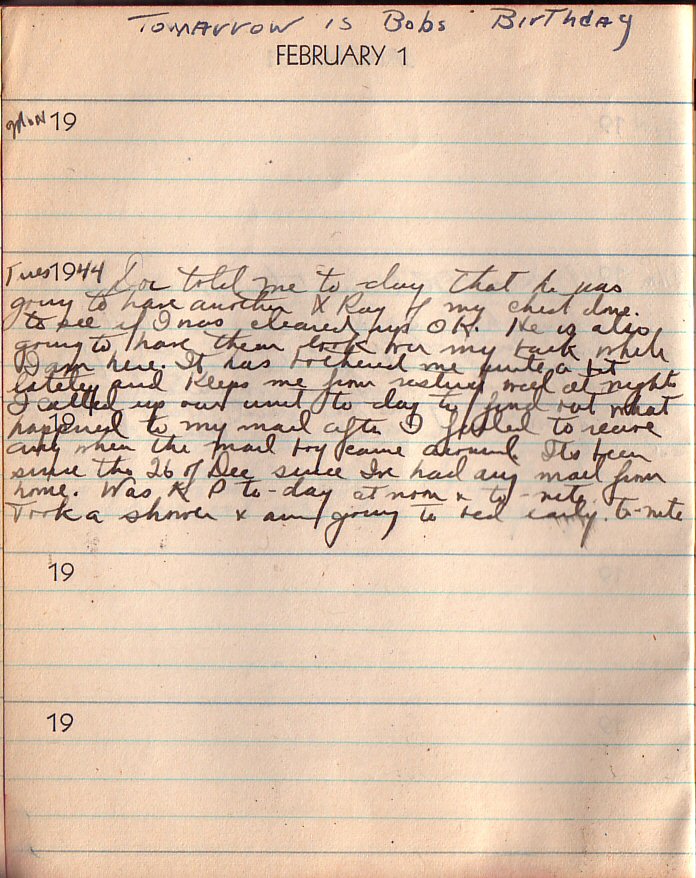 Tomarrow is Bobs Birthday
FEBRUARY 1
Mon 19
Tues 1944 Doc told me to-day that he was
going to have another X Ray of my chest done.
to see if I was cleared up OK. He is also
going to have them look over my back while
I am here. It has bothered me quite a bit
lately and keeps me from resting well at nights
I called up our unit to day to find out what
19
happened to my mail after I failed to receive
any when the mail boy came around. Its been
since the 26 of Dec since Ive had any mail from
home. Was K P to-day at noon & to-nite.
Took a shower & am going to bed early. to-nite
19
19